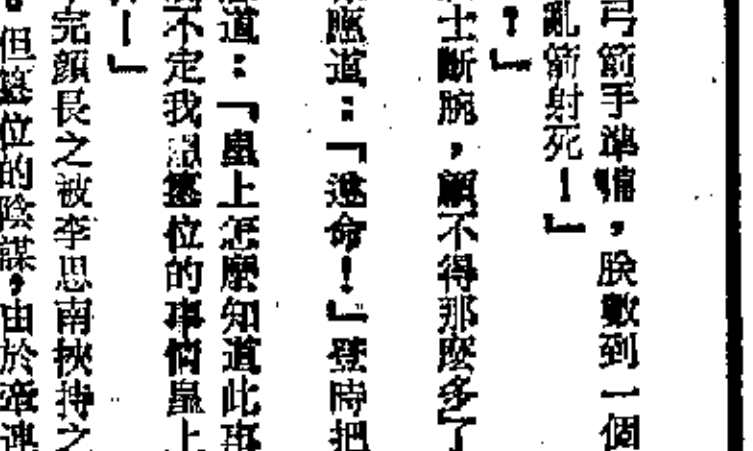 弓箭手準備，朕數到一個
亂箭射死！」
！」
士斷腕，顧不得那麼多了
應道：「遵命！」登時把
道：「皇上怎麼知道此事
不定我跟篡位的事情皇上
！」
完顏長之被李思南挾持之
。但篡位的陰謀，由於牽連